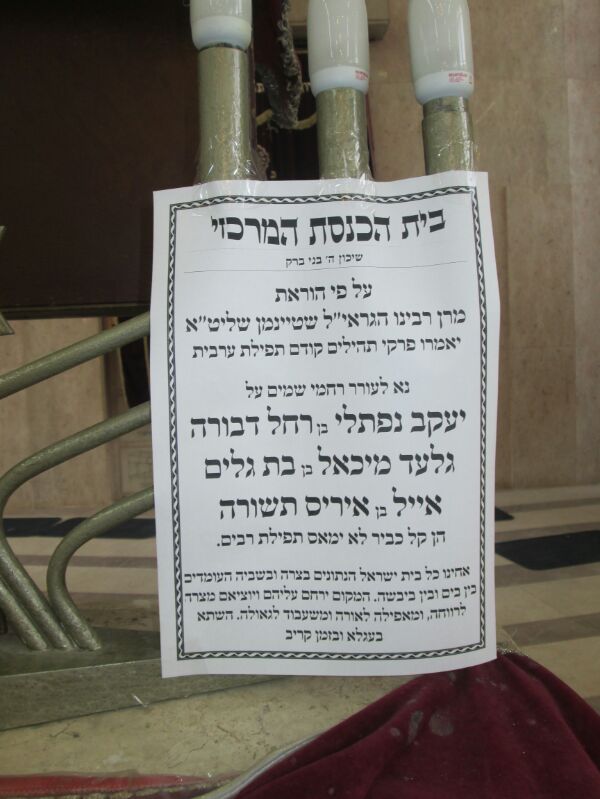 בית הכנסת המרכזי
שיכון ה' בני ברק
על פי הוראת
מרן רבינו הגראי״ל שטיינמן שליט״א
יאמרו פרקי תהילים קודם תפילת ערבית
נא לעורר רחמי שמים על
יעקב נפתלי בן רחל דבורה
גלעד מיכאל בן בת גלים
אייל בן איריס תשורה
הן קל כביר לא ימאס תפילת רבים.
אחינו כל בית ישראל הנתונים בצרה ובשביה העומדים
בין בים ובין ביבשה. המקום ירחם עליהם ויוציאם מצרה
לרווחה, ומאפילה לאורה ומשעבוד לגאולה. השתא
בעגלא ובזמן קריב